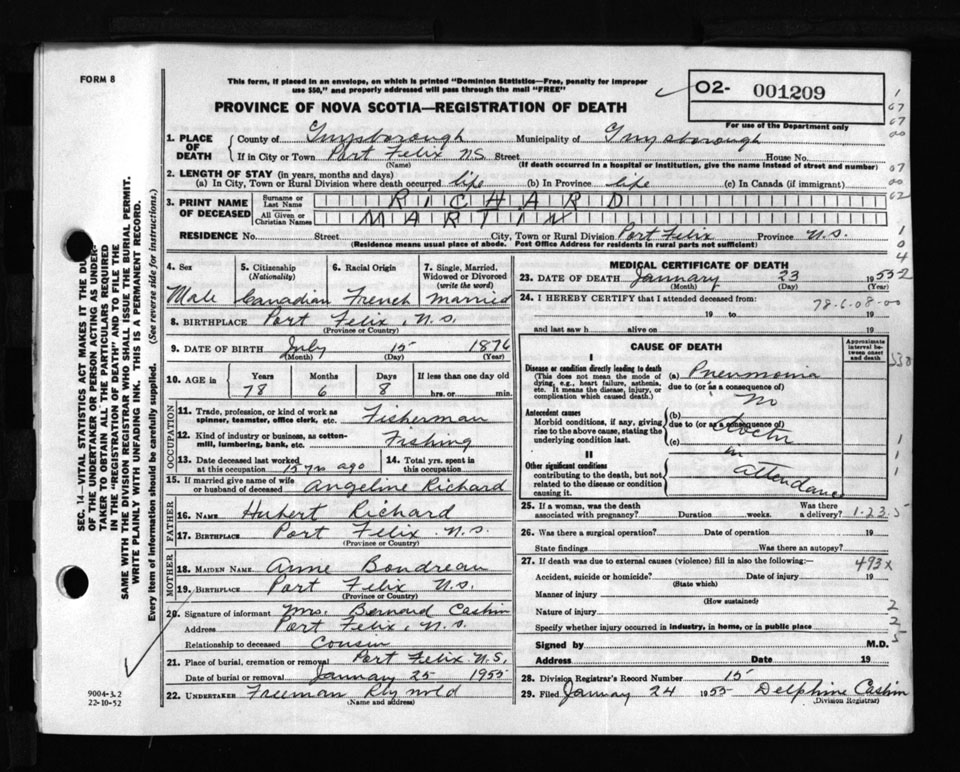 FORM 8
This form, if placed in an envelope, on which is printed "Dominion Statistics—Free, penalty for improper
use $50," and properly addressed will pass through the mail "FREE"
PROVINCE OF NOVA SCOTIA—REGISTRATION OF DEATH
02- 001209
For use of the Department only
1. PLACE OF DEATH County of Guysborough Municipality of Guysborough
If in City or Town Port Felix N.S. Street House No.
(Name) (If death occurred in a hospital or institution, give the name instead of street and number)
2. LENGTH OF STAY (in years, months and days)
(a) In City, Town or Rural Division where death occurred life (b) In Province life (c) In Canada (if immigrant)
3. PRINT NAME OF DECEASED Surname or Last Name RICHARD
All Given or Christian Names MARTIN
RESIDENCE No. Street City, Town or Rural Division Port Felix Province N.S.
(Residence means usual place of abode. Post Office Address for residents in rural parts not sufficient)
4. Sex 5. Citizenship (Nationality) 6. Racial Origin 7. Single, Married, Widowed or Divorced (write the word)
Male Canadian French Married
8. BIRTHPLACE Port Felix, N.S.
(Province or Country)
9. DATE OF BIRTH July 15 1876
(Month) (Day) (Year)
10. AGE in Years Months Days If less than one day old
78 6 8 hrs. or min.
OCCUPATION
11. Trade, profession, or kind of work as spinner, teamster, office clerk, etc. Fisherman
12. Kind of industry or business, as cotten-mill, lumbering, bank, etc. Fishing
13. Date deceased last worked at this occupation 15 yrs ago 14. Total yrs. spent in this occupation
15. If married give name of wife or husband of deceased Angeline Richard
FATHER
16. NAME Hubert Richard
17. BIRTHPLACE Port Felix N.S.
(Province or Country)
MOTHER
18. MAIDEN NAME Anne Boudreau
19. BIRTHPLACE Port Felix N.S.
(Province or Country)
20. Signature of informant Mrs. Bernard Cashin
Address Port Felix, N.S.
Relationship to deceased Cousin
21. Place of burial, cremation or removal Port Felix N.S.
Date of burial or removal January 25 1955
22. UNDERTAKER Freeman Reynold
(Name and address)
MEDICAL CERTIFICATE OF DEATH
23. DATE OF DEATH January 23 1955
(Month) (Day) (Year)
24. I HEREBY CERTIFY that I attended deceased from:
78-6-08-00
19 to 19
and last saw h alive on 19
CAUSE OF DEATH
Approximate interval between onset and death
I
Disease or condition directly leading to death (a) Pneumonia
(This does not mean the mode of dying, e.g., heart failure, asthenia, etc. It means the disease, injury, or complication which caused death.)
due to (or as a consequence of)
No
Antecedent causes
Morbid conditions, if any, giving rise to the above cause, stating the underlying condition last.
(b)
due to (or as a consequence of)
Doctor
(c)
in
II
Other significant conditions
contributing to the death, but not related to the disease or condition causing it.
attendance
25. If a woman, was the death associated with pregnancy? Duration weeks. Was there a delivery? 1-23-5
26. Was there a surgical operation? Date of operation 19
State findings Was there an autopsy?
27. If death was due to external causes (violence) fill in also the following:— 493x
Accident, suicide or homicide? Date of injury 19
(State which)
Manner of injury
(How sustained)
Nature of injury
Specify whether injury occurred in industry, in home, or in public place
Signed by M.D.
Address Date 19
28. Division Registrar's Record Number 15
29. Filed January 24 1955 Delphine Cashin
(Division Registrar)
SEC. 14—VITAL STATISTICS ACT MAKES IT THE DU
OF THE UNDERTAKER OR PERSON ACTING AS UNDER-
TAKER TO OBTAIN ALL THE PARTICULARS REQUIRED
IN THE "REGISTRATION OF DEATH" AND TO FILE THE
SAME WITH THE DIVISION REGISTRAR WHO SHALL ISSUE THE BURIAL PERMIT.
WRITE PLAINLY WITH UNFADING INK. THIS IS A PERMANENT RECORD.
Every item of information should be carefully supplied. (See reverse side for instructions.)
9004-3.2
22-10-52